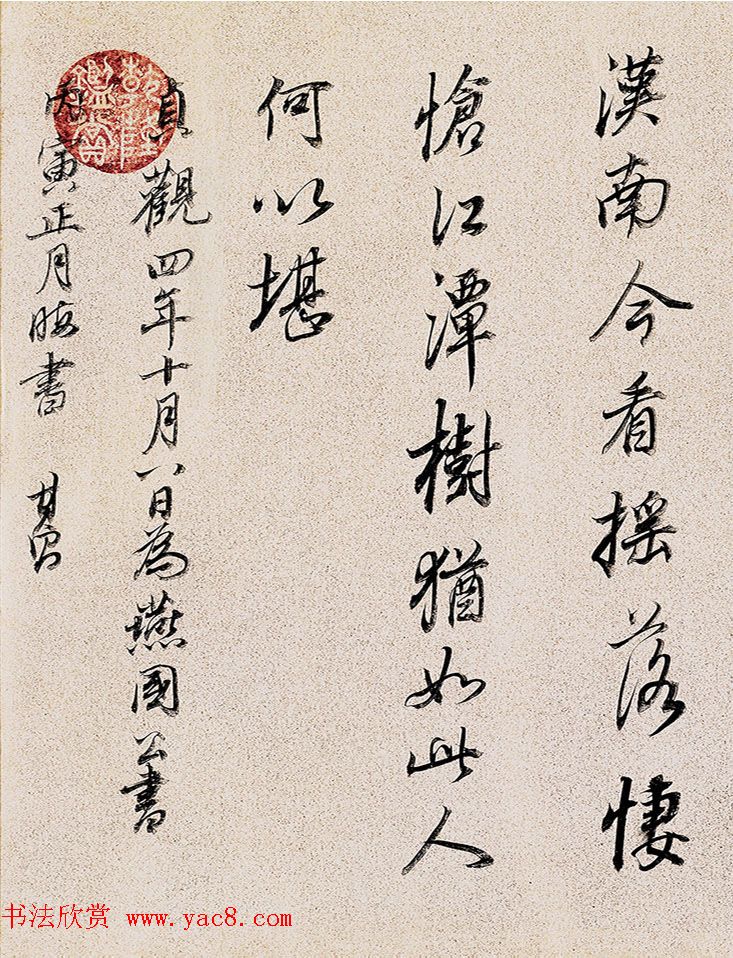 漢南今看搖落悽
愴江潭樹猶如此人
何以堪
貞觀四年十月八日為燕國公書
丙寅正月晦書
书法欣赏 www.yac8.com